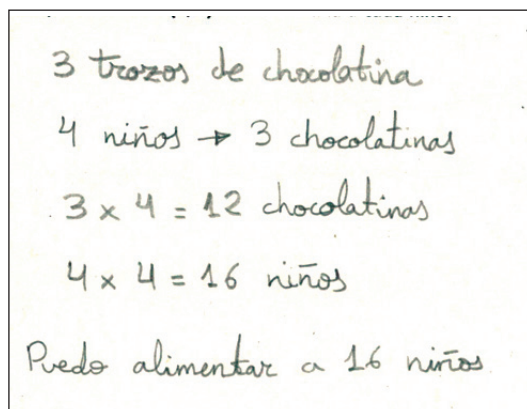 3 trozos de chocolatina
4 niños → 3 chocolatinas
3 x 4 = 12 chocolatinas
4 x 4 = 16 niños
Puedo alimentar a 16 niños